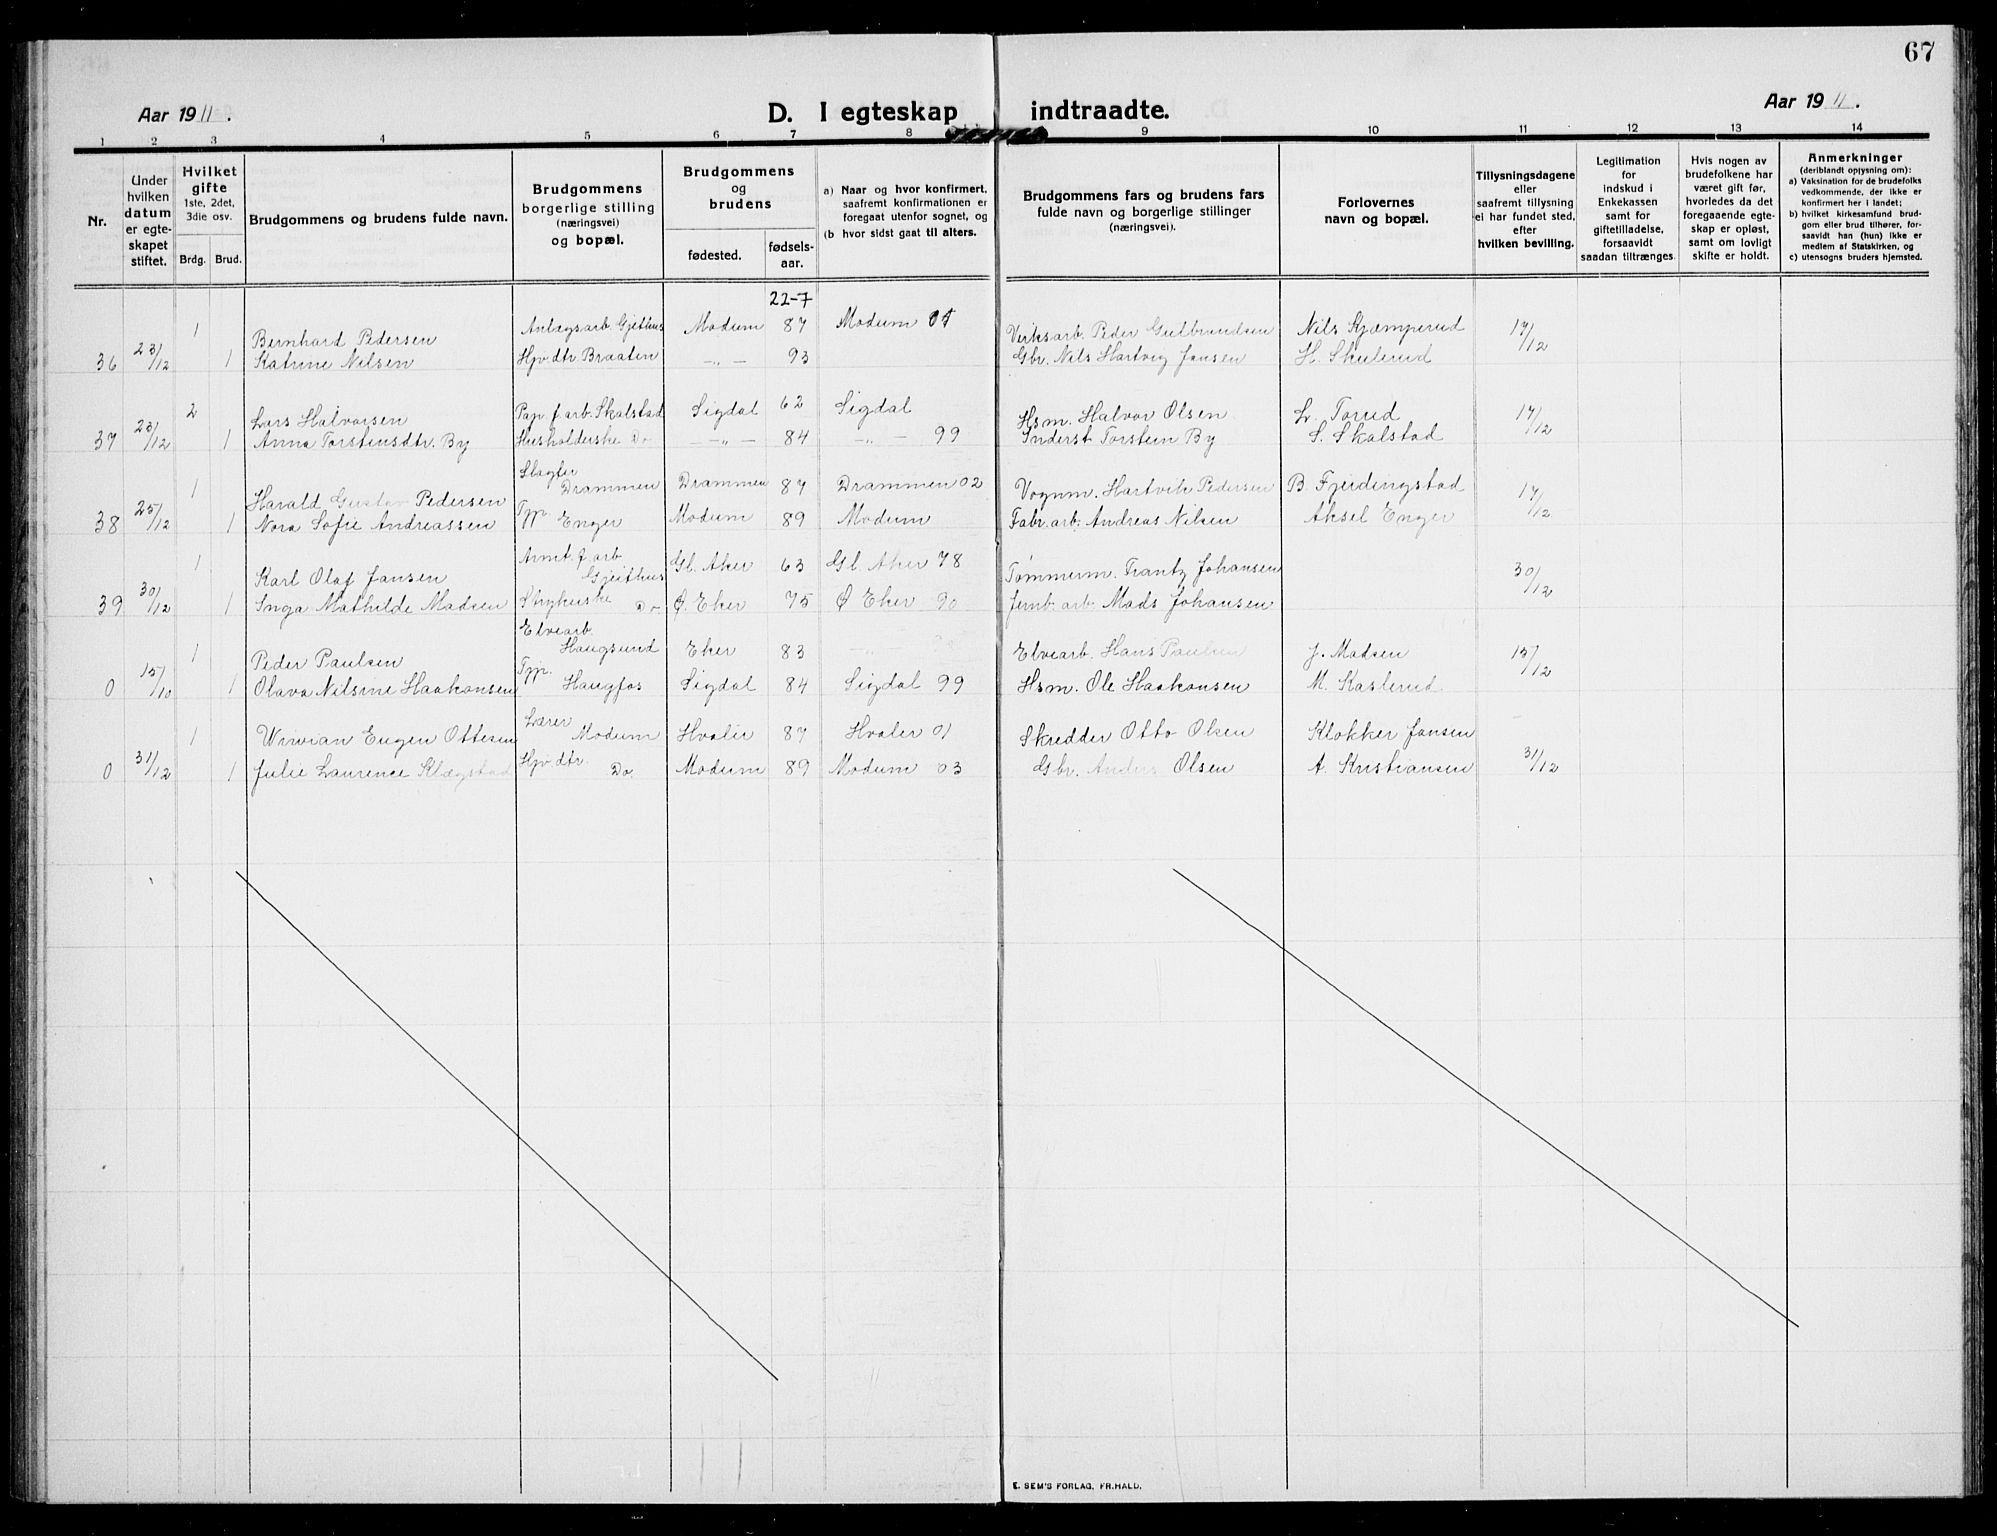 67
Aar 1911.
D. I egteskap indtraadte.
Aar 1911.
1 2 3 4 5 6 7 8 9 10 11 12 13 14
Nr.
Under hvilken datum er egteskapet stiftet.
Hvilket gifte 1ste, 2det, 3die osv.
Brdg. Brud.
Brudgommens og brudens fulde navn.
Brudgommens borgerlige stilling (næringsvei) og bopæl.
Brudgommens og brudens
fødested. fødsels-aar.
a) Naar og hvor konfirmert, saafremt konfirmationen er foregaat utenfor sognet, og
(b hvor sidst gaat til alters.
Brudgommens fars og brudens fars fulde navn og borgerlige stillinger (næringsvei).
Forlovernes navn og bopæl.
Tillysningsdagene eller saafremt tillysning ei har fundet sted, efter hvilken bevilling.
Legitimation for indskud i Enkekassen samt for giftetilladelse, forsaavidt saadan tiltrænges.
Hvis nogen av brudefolkene har været gift før, hvorledes da det foregaaende egteskap er opløst, samt om lovligt skifte er holdt.
Anmerkninger (deriblandt opjysning om):
a) Vaksination for de brudefolks vedkommende, der ikke er konfirmert her i landet;
b) hvilket kirkesamfund brudgom eller brud tilhører, forsaavidt han (hun) ikke er medlem af Statskirken, og
c) utensogns bruders hjemsted.
22-7
1 Bernhard Pedersen Anlægsarb. Gjethus Modum 87 Modum 01 Verksarb. Peder Gulbrandsen Nils Kjæmperud 17/12
36 23/12 1 Katrine Nilsen Hjv. dtr. Braaten -"- 93 Gbr. Nils Hartvig Jansen H. Skulerud
2 Lars Halvorsen Pap. f. arb. Skalstad Sigdal 62 Sigdal Hsm. Halvor Olsen L. Torud 17/12
37 23/12 1 Anna Torstensdtr. By Husholderske Do -"- 84 -"- 99 Inderst Torstein By S. Skalstad
1 Harald Gustav Pedersen Slagter Drammen Drammen 87 Drammen 02 Vognm. Hartvik Pedersen B. Fjerdingstad 17/12
38 25/12 1 Nora Sofie Andreassen Tjp. Enger Modum 89 Modum Fabr. arb. Andreas Nilsen Aksel Enger
1 Karl Olaf Jansen Armt. f. arb Gjeithus Gl. Aker 63 Gl. Aker 78 Tømmerm. Frantz Johansen 30/12
39 30/12 1 Inga Mathilde Madsen Strykerske Do Ø. Eker 75 Ø Eker 90 Jernb. arb. Mads Johansen
1 Peder Paulsen Elvearb. Haugsund Eker 83 -"- Elvearb. Hans Paulsen J. Madsen 15/12
0 15/10 1 Olava Nilsine Haakonsen Tjp. Haugfos Sigdal 84 Sigdal 99 Hsm. Ole Haakonsen M. Kaslerud
1 Wivian Eugen Ottesen Lærer Modum Hvaler 87 Hvaler 01 Skredder Otto Olsen Klokker Jansen
0 31/12 1 Julie Laurence Klægstad Hjv. dtr. Do. Modum 89 Modum 03 Gbr. Anders Olsen A. Kristiansen 31/12
E. SEM'S FORLAG, FR.HALD.